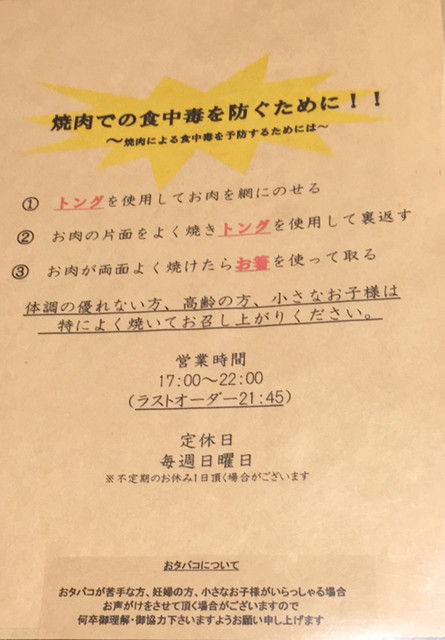 焼肉での食中毒を防ぐために！！
～焼肉による食中毒を予防するためには～
① トングを使用してお肉を網にのせる
② お肉の片面をよく焼きトングを使用して裏返す
③ お肉が両面よく焼けたらお箸を使って取る
体調の優れない方、高齢の方、小さなお子様は
特によく焼いてお召し上がりください。
営業時間
17:00～22:00
(ラストオーダー21:45)
定休日
毎週日曜日
※不定期のお休み1日頂く場合がございます
おタバコについて
おタバコが苦手な方、妊婦の方、小さなお子様がいらっしゃる場合
お声がけをさせて頂く場合がございますので
何卒御理解・御協力下さいますようお願い申し上げます